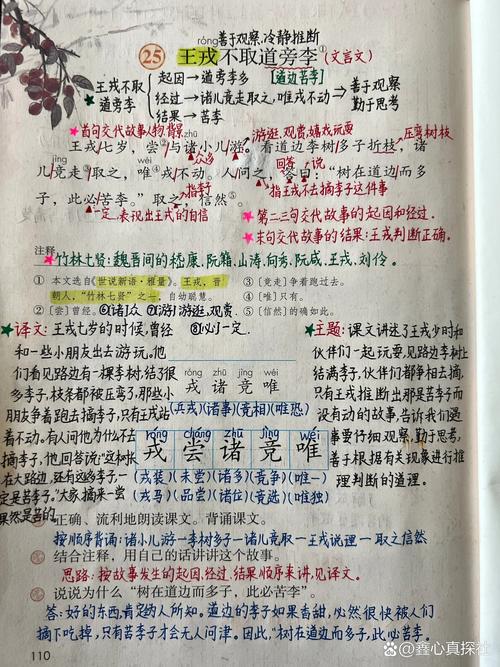 róng善于观察,冷静推断
25 王戎不取道旁李①(文言文)
王戎不取道旁李
起因→道旁李多 [道边苦李]
经过→诸儿竞走取之,唯戎不动→善于观察 勤于思考
结果→苦李
首句交代故事人物,背景
zhū
游逛,观赏,嬉戏玩耍
压弯树枝
王戎七岁,尝②与诸小儿游。看道边李树多子折枝,诸
jìng
众多
wéi
回答
说
儿竞走③取之,唯④戎不动。人问之,答曰:“树在道边而多
指李子
指王戎不去摘李子这件事
子,此必苦李。”取之,信然⑤。
一定.表现出王戎的自信
第二三句交代故事的起因和经过.
末句交代故事的结果:王戎判断正确.
注释
竹林七贤:魏晋间的嵇康、阮籍、山涛、向秀、阮咸、王戎、刘伶。
① 本文选自《世说新语·雅量》。王戎,晋朝人,“竹林七贤”之一,自幼聪慧。
②〔尝〕曾经。
⑥[诸]众 ⑦[游]游逛,观赏.
⑧[必]一定.
③〔竞走〕争着跑过去。
④〔唯〕只有。
⑤〔信然〕的确如此。
译文:王戎七岁的时候,曾经
和一些小朋友出去游玩。他
们看见路边有一棵李树,结了很
多李子,枝条都被压弯了,那些小
朋友争着跑去摘李子,只有王戎站
着不动。有人问他为什么不去
摘李子,他回答说:“这种树
在大路边,还有这多李子,一
定是苦李子。”大家摘来一尝
果然是苦的。
róng zhū jìng wéi
戎 诸 竞 唯
(兵戎)(诸事)(竞相)(唯恐)
róng cháng zhū jìng wéi
戎 尝 诸 竞 唯
(戎装)(未尝)(诸多)(竞争)(唯一)
(戎马)(品尝)(诸位)(竞选)(唯独)
主题:课文讲述了王戎少时和
伙伴们一起玩耍,见路边李树上
结满李子,伙伴们都争相去摘,
只有王戎推断出那是苦李而
没有动的故事,告诉我们遇
事要仔细观察,勤于思考,
善于根据有关现象进行推
理判断的道理。
正确、流利地朗读课文。背诵课文。
按顺序背诵:诸小儿游—李树多子—诸儿竞取—王戎说理—取之信然
结合注释,用自己的话讲讲这个故事。
思路:按故事发生的起因,经过,结果顺序来讲,见译文。
说说为什么“树在道边而多子,此必苦李。”
答:好的东西,肯定为人所知。道边的李子如果香甜,必然很快被人们
摘下吃掉,只有苦李子才会无人问津。因此,“树在道边而多子,此必苦李.
110
@鑫心真探社